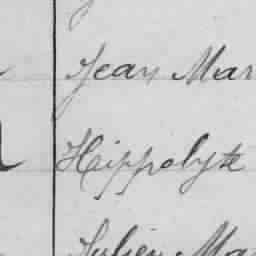 Jean Mar
Hippolyte
Julien Ma